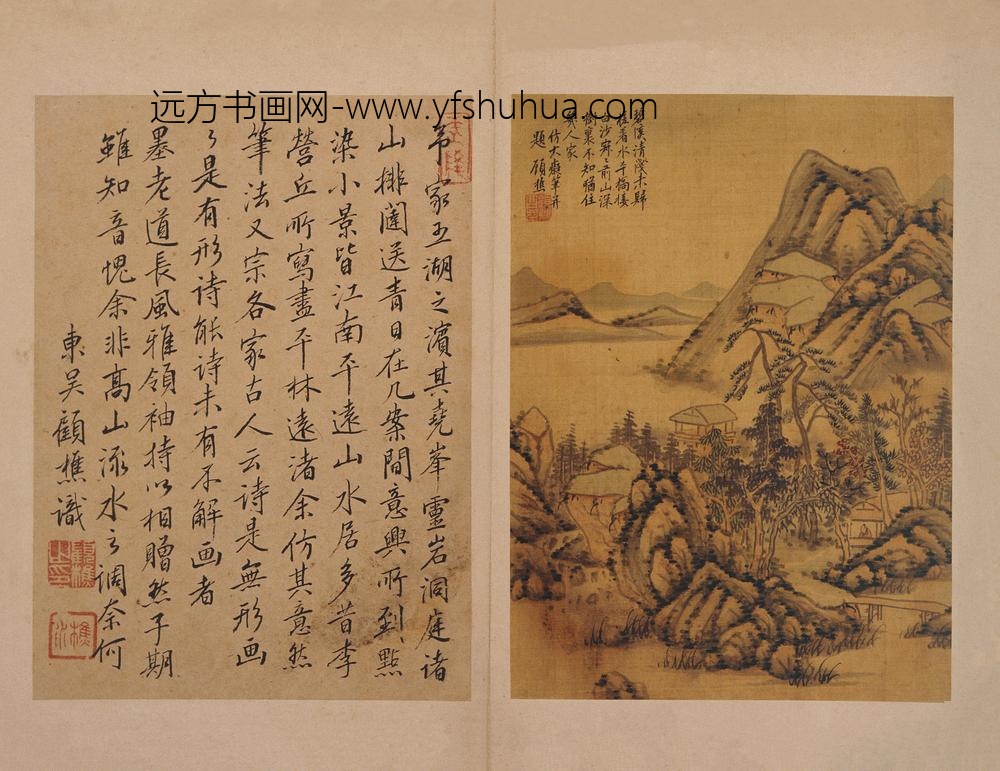 远方书画网-www.yfshuhua.com
弟家五湖之濱其堯峯靈岩洞庭诸
山排闥送青日在几案間意興所到點
染小景皆江南平遠山水居多昔李
營丘所寫盡平林遠渚余仿其意然
筆法又宗各家古人云诗是無形画
画是有形诗能诗未有不解画者
墨老道長風雅領袖持以相贈然子期
雖知音愧余非高山流水之调奈何
東吴顧樵識
碧溪清淺未歸
桂著水平橋樓
白沙寒前山深
樹裏不知猶住
幾人家
仿大癡筆并
題 顧樵